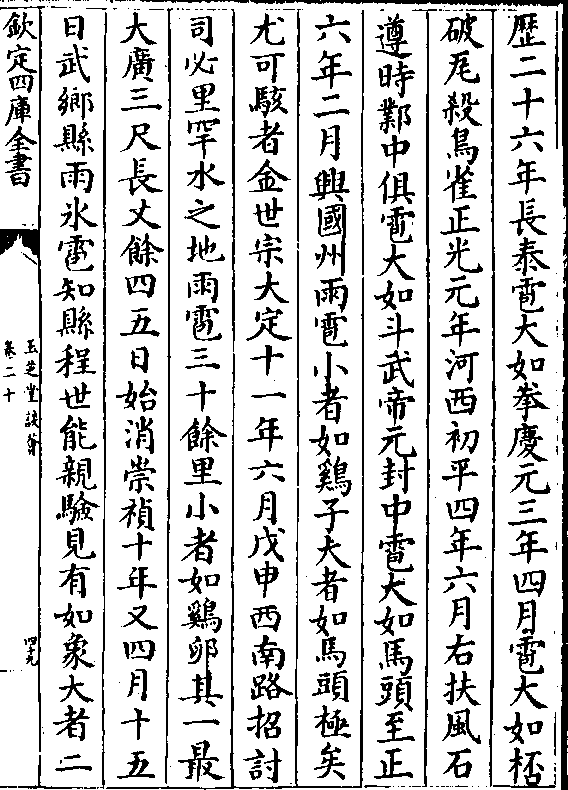 歷二十六年長泰雹大如拳慶元三年四月雹大如桮
破瓦殺烏雀正光元年河西初平四年六月右扶風石
遵時鄴中俱雹大如斗武帝元封中雹大如馬頭至正
六年二月興國州雨雹小者如鷄子大者如馬頭極矣
尤可駭者金世宗大定十一年六月戊申西南路招討
司必里罕水之地雨雹三十餘里小者如鷄卵其一最
大廣三尺長丈餘四五日始消崇禎十年又四月十五
日武鄉縣雨氷雹知縣程世能親驗見有如象大者二
欽定四庫全書
玉芝堂談薈
卷二十
四九